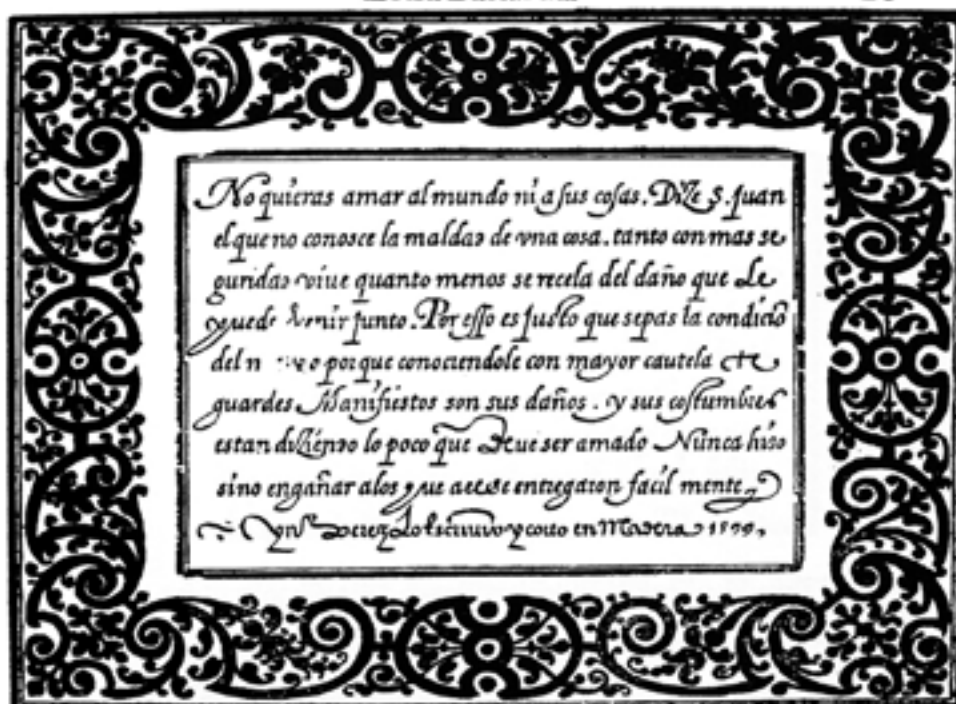 No quieras amar al mundo ni a sus cosas. Dize S. Juan
el que no conosce la maldad de vna cosa. tanto con mas se
guridad viue quanto menos se recela del daño que Le
puede venir junto. Por esso es justo que sepas la condiciõ
del porque conociendole con mayor cautela te
guardes Manifiestos son sus daños. y sus costumbres
estan diziendo lo poco que deue ser amado Nunca hizo
sino engañar alos que ael se entregaron facil mente
Perez Lo escriuio y corto en Madera 1599.